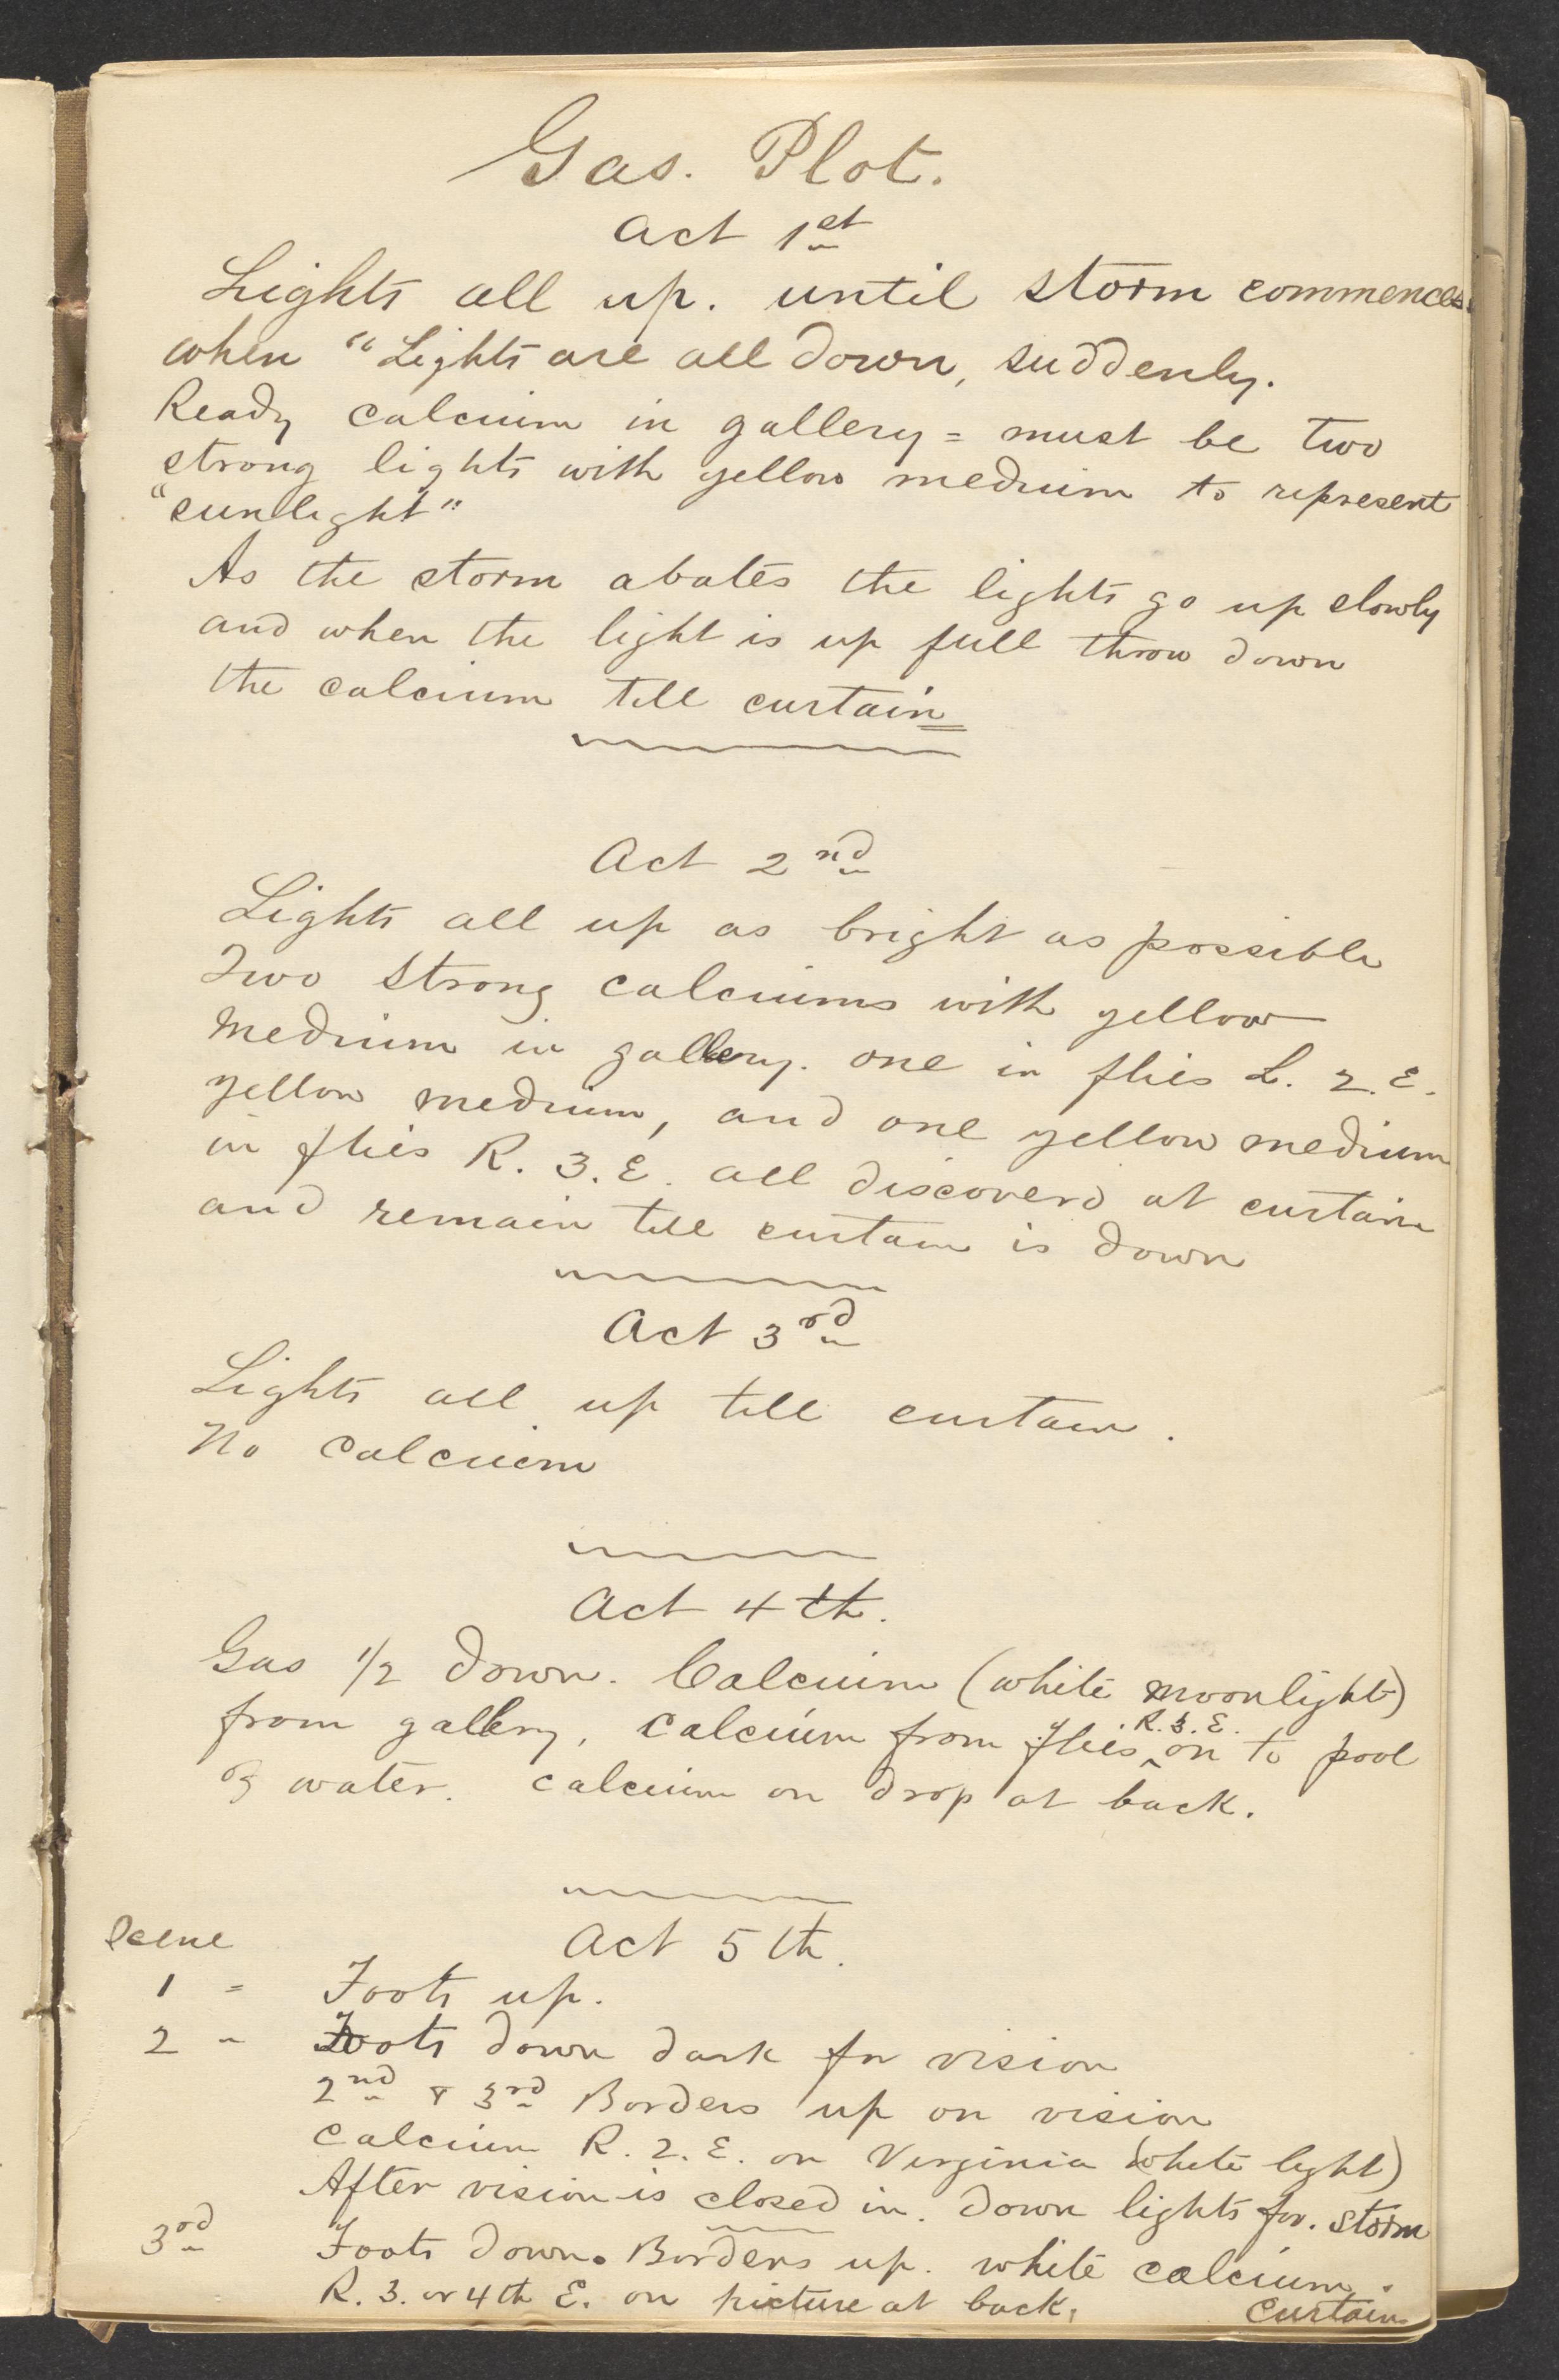 Gas. Plot.
Act 1st
Lights all up. until storm commences.
when "Lights are all down, suddenly.
Ready calcium in gallery = must be two
strong lights with yellow medium to represent
"sunlight"
As the storm abates the lights go up slowly
and when the light is up full throw down
the calcium till curtain
Act 2nd
Lights all up as bright as possible
Two strong calciums with yellow
medium in gallery. one in flies L. 2. E.
yellow medium, and one yellow medium
in flies R. 3. E. all discoverd at curtain
and remain till curtain is down
Act 3rd
Lights all up till curtain.
No calcium
Act 4th.
Gas 1/2 down. Calcium (white moonlight)
from gallery, calcium from flies R. 3. E. on to pool
of water. calcium on drop at back.
Act 5th.
Scene
1 = Foots up.
2 - Foots down dark for vision
2nd & 3rd Borders up on vision
calcium R. 2. E. on Virginia (white light)
After vision is closed in. down lights for. storm
3rd Foots down. Borders up. white calcium.
R. 3. or 4th E. on picture at back.
Curtain